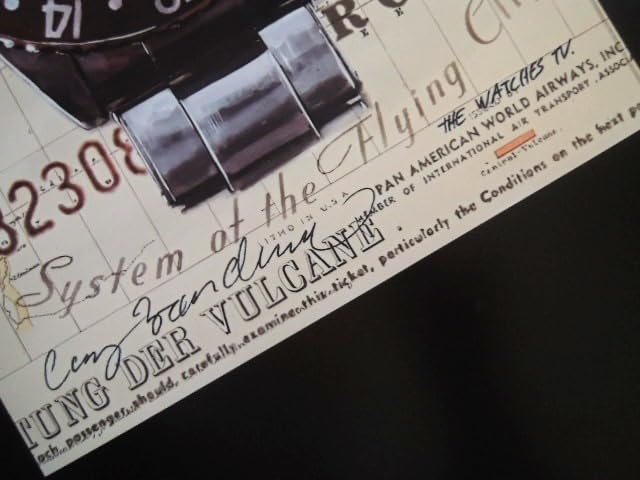 14
32308
System of the Flying Cli
THE WATCHES TV.
PAN AMERICAN WORLD AIRWAYS, INC
MEMBER OF INTERNATIONAL AIR TRANSPORT ASSOCI
LITHO IN U.S.A.
TUNG DER VULCANE.
passenger should carefully examine this ticket, particularly the Conditions on the next p